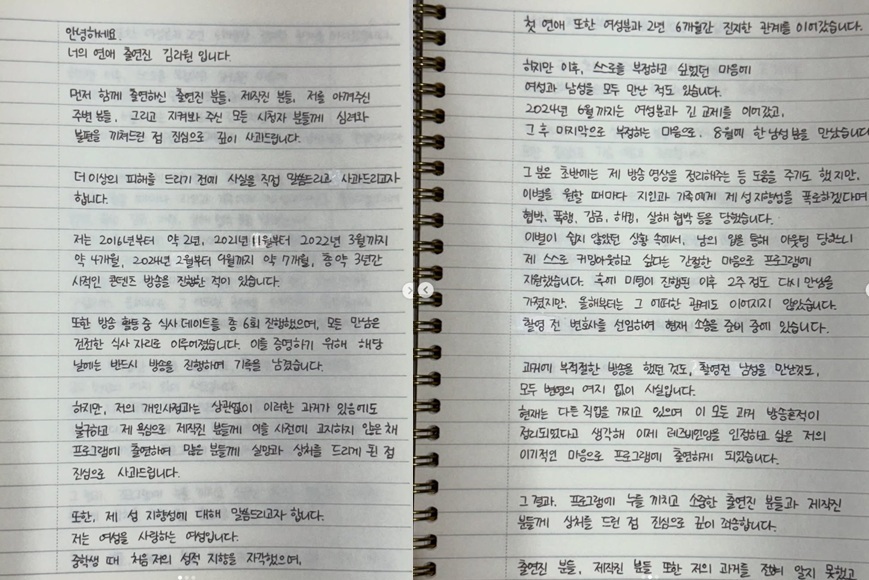 안녕하세요
너의 연애 출연진 김리원 입니다.
먼저 함께 출연하신 출연진 분들, 제작진 분들, 저를 아껴주신
주변 분들, 그리고 지켜봐 주신 모든 시청자 분들께 심려와
불편을 끼쳐드린 점 진심으로 깊이 사과드립니다.
더 이상의 피해를 드리기 전에 사실을 직접 말씀드리고 사과드리고자
합니다.
저는 2016년부터 약 2년, 2021년 11월부터 2022년 3월까지
약 4개월, 2024년 2월부터 9월까지 약 7개월, 총 약 3년간
사적인 콘텐츠 방송을 진행한 적이 있습니다.
또한 방송 활동 중 식사 데이트를 총 6회 진행했으며, 모든 만남은
건전한 식사 자리로 이루어졌습니다. 이를 증명하기 위해 해당
날에는 반드시 방송을 진행하여 기록을 남겼습니다.
하지만, 저의 개인사정과는 상관없이 이러한 과거가 있음에도
불구하고 제 욕심으로 제작진 분들께 이를 사전에 고지하지 않은 채
프로그램에 출연하여 많은 분들께 실망과 상처를 드리게 된 점
진심으로 사과드립니다.
또한, 제 성 지향성에 대해 말씀드리고자 합니다.
저는 여성을 사랑하는 여성입니다.
중학생 때 처음 저의 성적 지향을 자각했으며,
첫 연애 또한 여성분과 2년 6개월간 진지한 관계를 이어갔습니다.
하지만 이후, 스스로를 부정하고 싶었던 마음에
여성과 남성을 모두 만난 적도 있습니다.
2024년 6월까지는 여성분과 긴 교제를 이어갔고,
그 후 마지막으로 부정하는 마음으로, 8월에 한 남성 분을 만났습니다
그 분은 초반에는 제 방송 영상을 정리해주는 등 도움을 주기도 했지만,
이별을 원할 때마다 지인과 가족에게 제 성 지향성을 폭로하겠다며
협박, 폭행, 감금, 해킹, 살해 협박 등을 당했습니다.
이별이 쉽지 않았던 상황 속에서, 남의 입을 통해 아웃팅 당하느니
제 스스로 커밍아웃하고 싶다는 간절한 마음으로 프로그램에
지원했습니다. 후에 미팅이 진행된 이후 2주 정도 다시 만남을
가졌지만, 올해부터는 그 어떠한 관계도 이어지지 않았습니다.
촬영 전 변호사를 선임하여 현재 소송을 준비 중에 있습니다.
과거에 부적절한 방송을 했던 것도, 촬영전 남성을 만난것도,
모두 변명의 여지 없이 사실입니다.
현재는 다른 직업을 가지고 있으며 이 모든 과거 방송흔적이
정리되었다고 생각해 이제 레즈비언임을 인정하고 싶은 저의
이기적인 마음으로 프로그램에 출연하게 되었습니다.
그 결과, 프로그램에 누를 끼치고 소중한 출연진 분들과 제작진
분들께 상처를 드린 점 진심으로 깊이 죄송합니다.
출연진 분들, 제작진 분들 또한 저의 과거를 전혀 알지 못했고